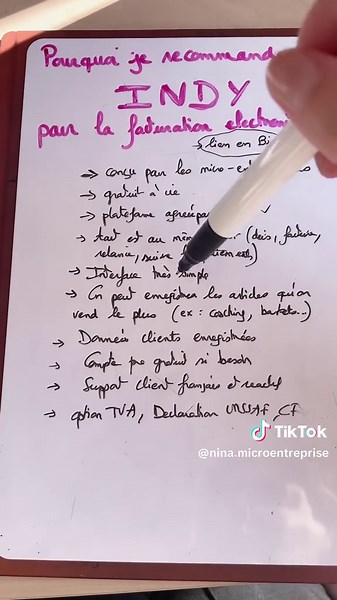 Pourquoi je recommand
INDY
pour la facturation electroni
→ lien en Bi
→ conçu par les micro-ent
→ gratuit à vie
→ plateforme agréée par
→ tout est au mêm (devis, facture,
relance, suivre
→ Interface très simple
→ On peut enregistrer les articles qu'on
vend le plus (ex: coaching, baskets...)
→ Données clients enregistrées
→ Compte pro gratuit si besoin
→ Support client français et réactif
→ option TVA, Declaration URSSAF, CF
TikTok
@nina.microentreprise